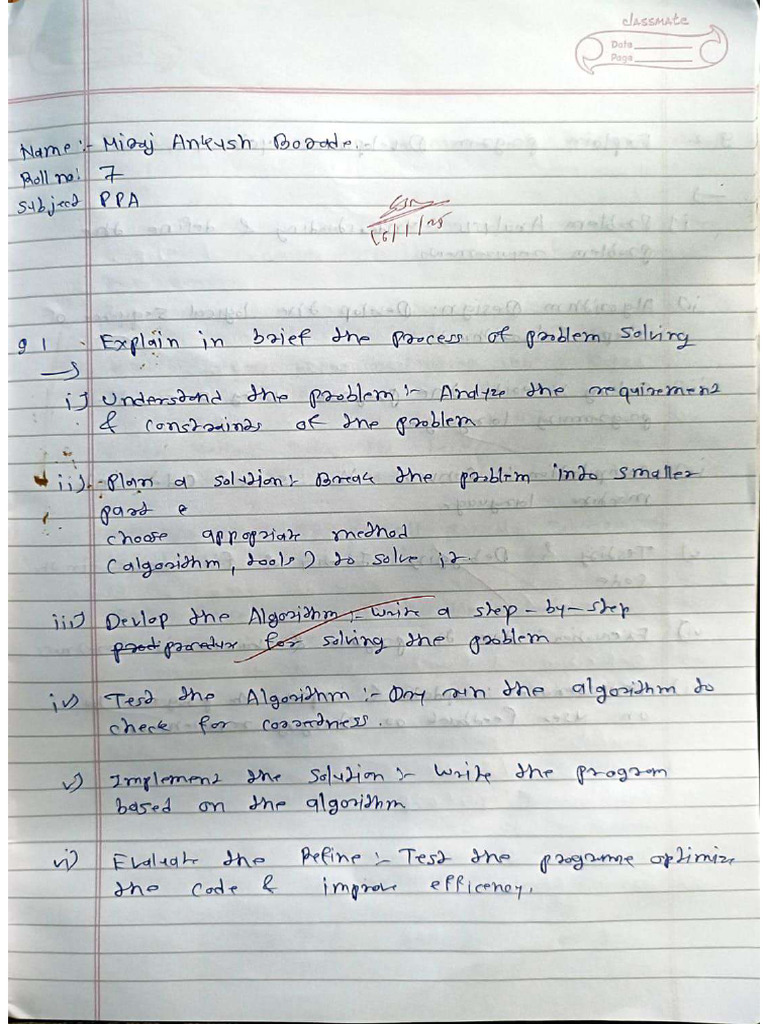 classmate
Date
Page
Name :- Miraj Ankush Borade.
Roll no: 7
Subject PPA
16/1/25
Q1 Explain in brief the process of problem solving
→
i) Understand the problem :- Analyze the requirement
& constraints of the problem
ii) Plan a solution :- Break the problem into smaller
part &
choose appopriate method
(algorithm, tools) to solve it.
iii) Devlop the Algorithm :- write a step-by-step
procedure for solving the problem
iv) Test the Algorithm :- Dry run the algorithm to
check for correctness.
v) Implement the solution :- write the program
based on the algorithm
vi) Evaluate the Refine :- Test the programe optimize
the code & improve efficency.